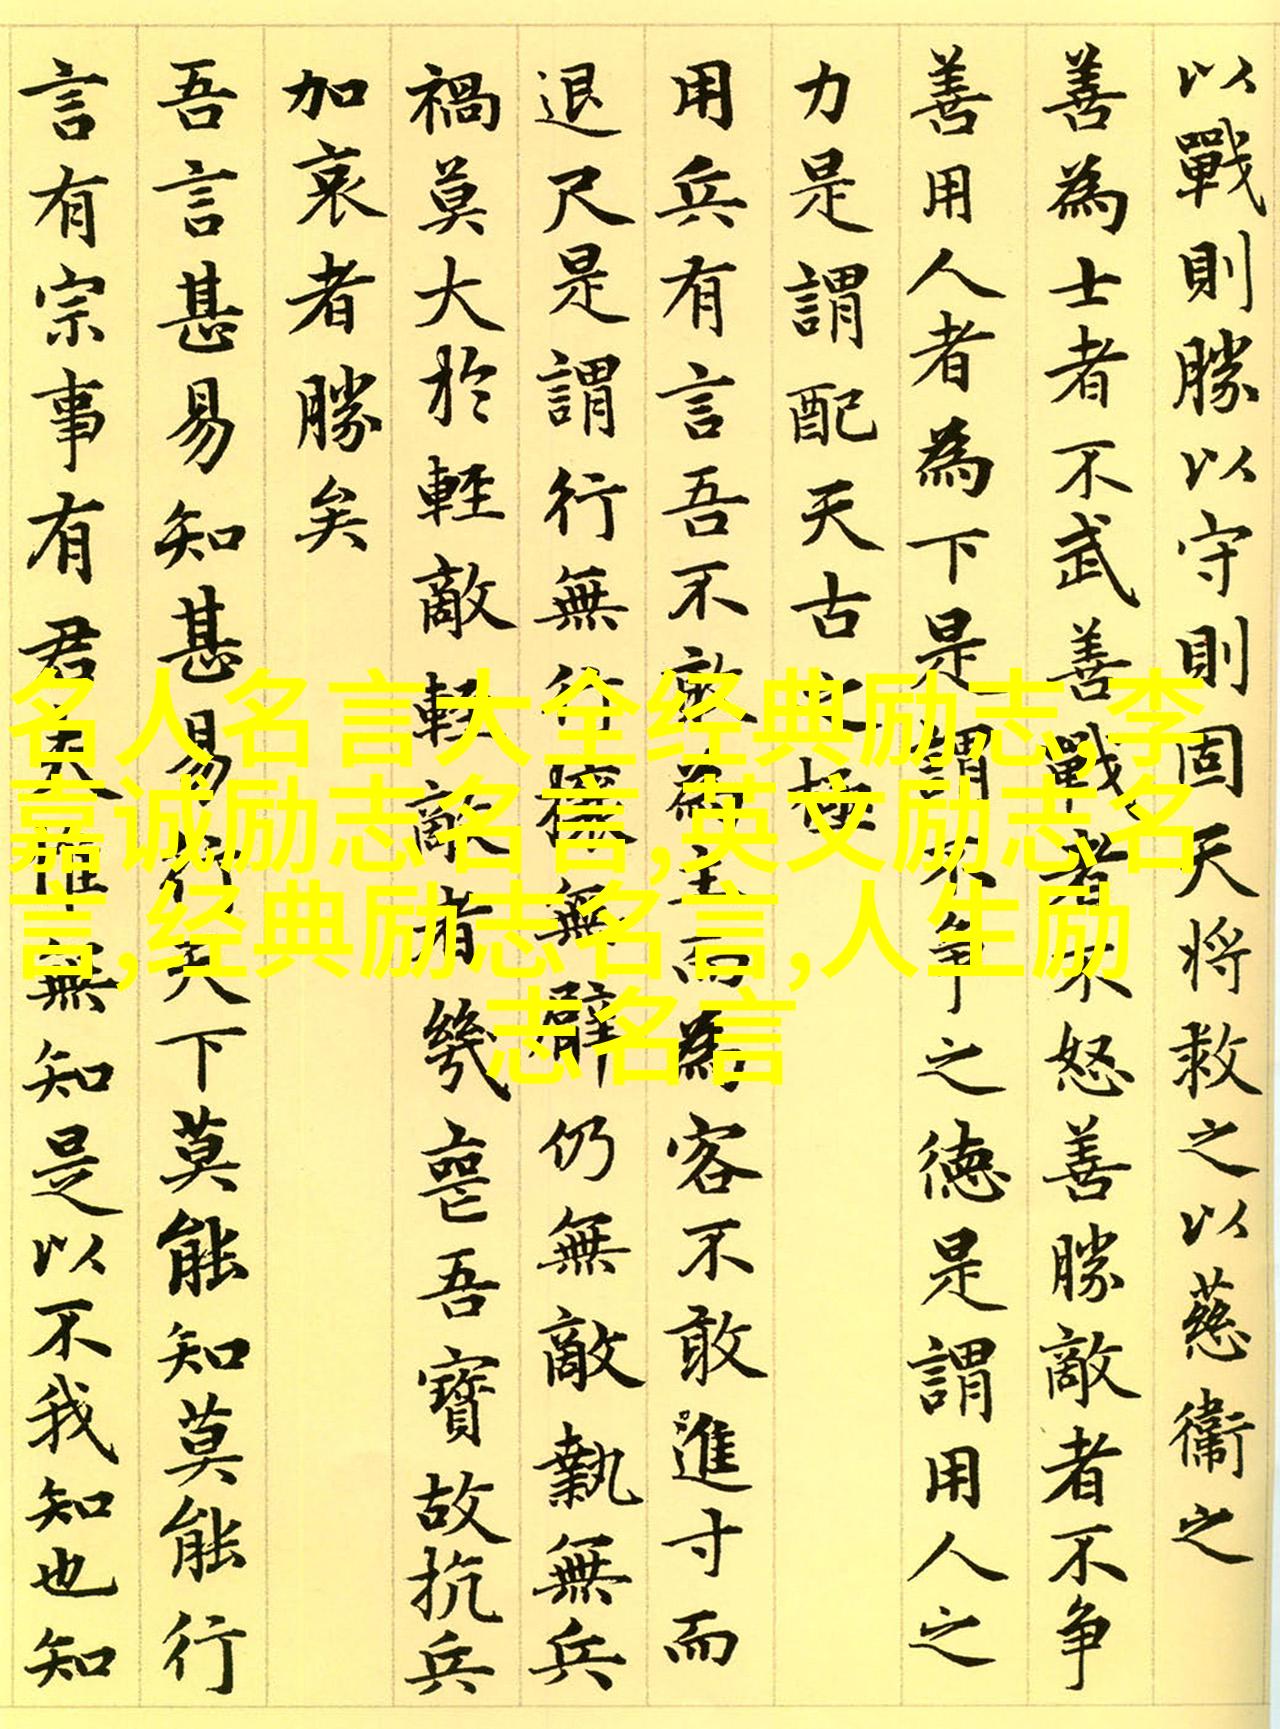 以戰則勝以守則固天将救之以慈衞之
善為士者不武善戰者不怒善勝敵者不争
善用人者為下是謂不争之德是謂用人之
力是謂配天古之極
用兵有言吾不敢為主而為客不敢進寸而
退尺是謂行無行攘無臂仍無敵執無兵
禍莫大於輕敵輕敵者幾喪吾寳故抗兵
加哀者勝矣
吾言甚易知甚易行天下莫能知莫能行
言有宗事有君夫惟無知是以不我知也知
名人名言大全经典励志,李
嘉诚励志名言,英文励志名
言,经典励志名言,人生励
志名言